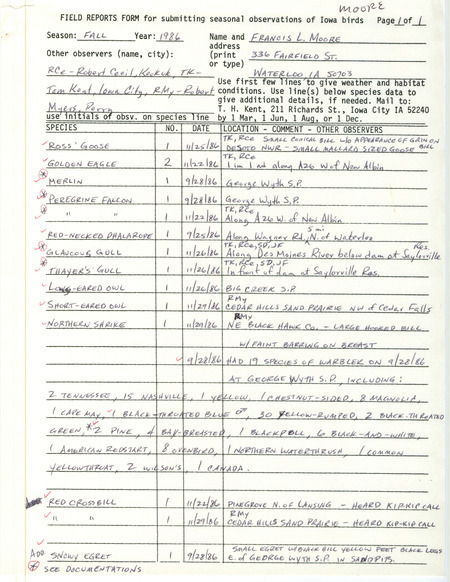 MOORE
FIELD REPORTS FORM for submitting seasonal observations of Iowa birds Page 1 of 1
Season: FALL Year: 1986 Name and FRANCIS L. MOORE
Other observers (name, city): address 336 FAIRFIELD ST.
(print
RCe-Robert Cecil, Keokuk, TK- or type) WATERLOO, IA 50703
Tom Kent, Iowa City, RMy-Robert
Myers, Perry
Use first few lines to give weather and habitat
conditions. Use line(s) below species data to
give additional details, if needed. Mail to:
T. H. Kent, 211 Richards St., Iowa City IA 52240
use initials of obsv. on species line by 1 Mar, 1 Jun, 1 Aug, or 1 Dec.
SPECIES NO. DATE LOCATION - COMMENT - OTHER OBSERVERS
TK, RCe SMALL CONICAL BILL W/O APPEARANCE OF GRIN ON BILL
ROSS' GOOSE 1 11/25/86 DESOTO NWR - SMALL MALLARD SIZED GOOSE
TK, RCe
GOLDEN EAGLE 2 11/22/86 1 im 1 ad along A26 W of New Albin
MERLIN 1 9/28/86 George Wyth S.P.
PEREGRINE FALCON 1 9/28/86 George Wyth S.P.
TK, RCe
" " 1 11/22/86 Along A26 W. of New Albin
5 mi
RED-NECKED PHALAROPE 1 7/25/86 Along Wagner Rd, N. of Waterloo
TK, RCe, SD, JF Res.
GLAUCOUS GULL 1 11/26/86 Along Des Moines River below dam at Saylorville
TK, RCe, SD, JF
THAYER'S GULL 1 11/26/86 In front of dam at Saylorville Res.
LONG-EARED OWL 1 11/26/86 BIG CREEK S.P.
RMy
SHORT-EARED OWL 1 11/29/86 CEDAR HILLS SAND PRAIRIE NW of Cedar Falls
RMy
NORTHERN SHRIKE 1 11/29/86 NE BLACK HAWK Co. - LARGE HOOKED BILL
W/FAINT BARRING ON BREAST
9/28/86 HAD 19 SPECIES OF WARBLER ON 9/28/86
AT GEORGE WYTH S.P., INCLUDING:
2 TENNESSEE, 15 NASHVILLE, 1 YELLOW, 1 CHESTNUT-SIDED, 8 MAGNOLIA,
1 CAPE MAY, 1 BLACK-THROATED BLUE ♂, 30 YELLOW-RUMPED, 2 BLACK-THROATED
GREEN, *2 PINE, 4 BAY-BREASTED, 1 BLACKPOLL, 6 BLACK-AND-WHITE,
1 AMERICAN REDSTART, 8 OVENBIRD, 1 NORTHERN WATERTHRUSH, 1 COMMON
YELLOWTHROAT, 2 WILSON'S, 1 CANADA.
RED CROSSBILL 1 11/22/86 PINEGROVE N. OF LANSING - HEARD KIP-KIP CALL
RMy
" " 1 11/29/86 CEDAR HILLS SAND PRAIRIE - HEARD KIP-KIP CALL
SMALL EGRET W/BLACK BILL YELLOW FEET BLACK LEGS
ADD SNOWY EGRET 1 9/28/86 E. of GEORGE WYTH S.P. IN SANDPITS.
* SEE DOCUMENTATIONS